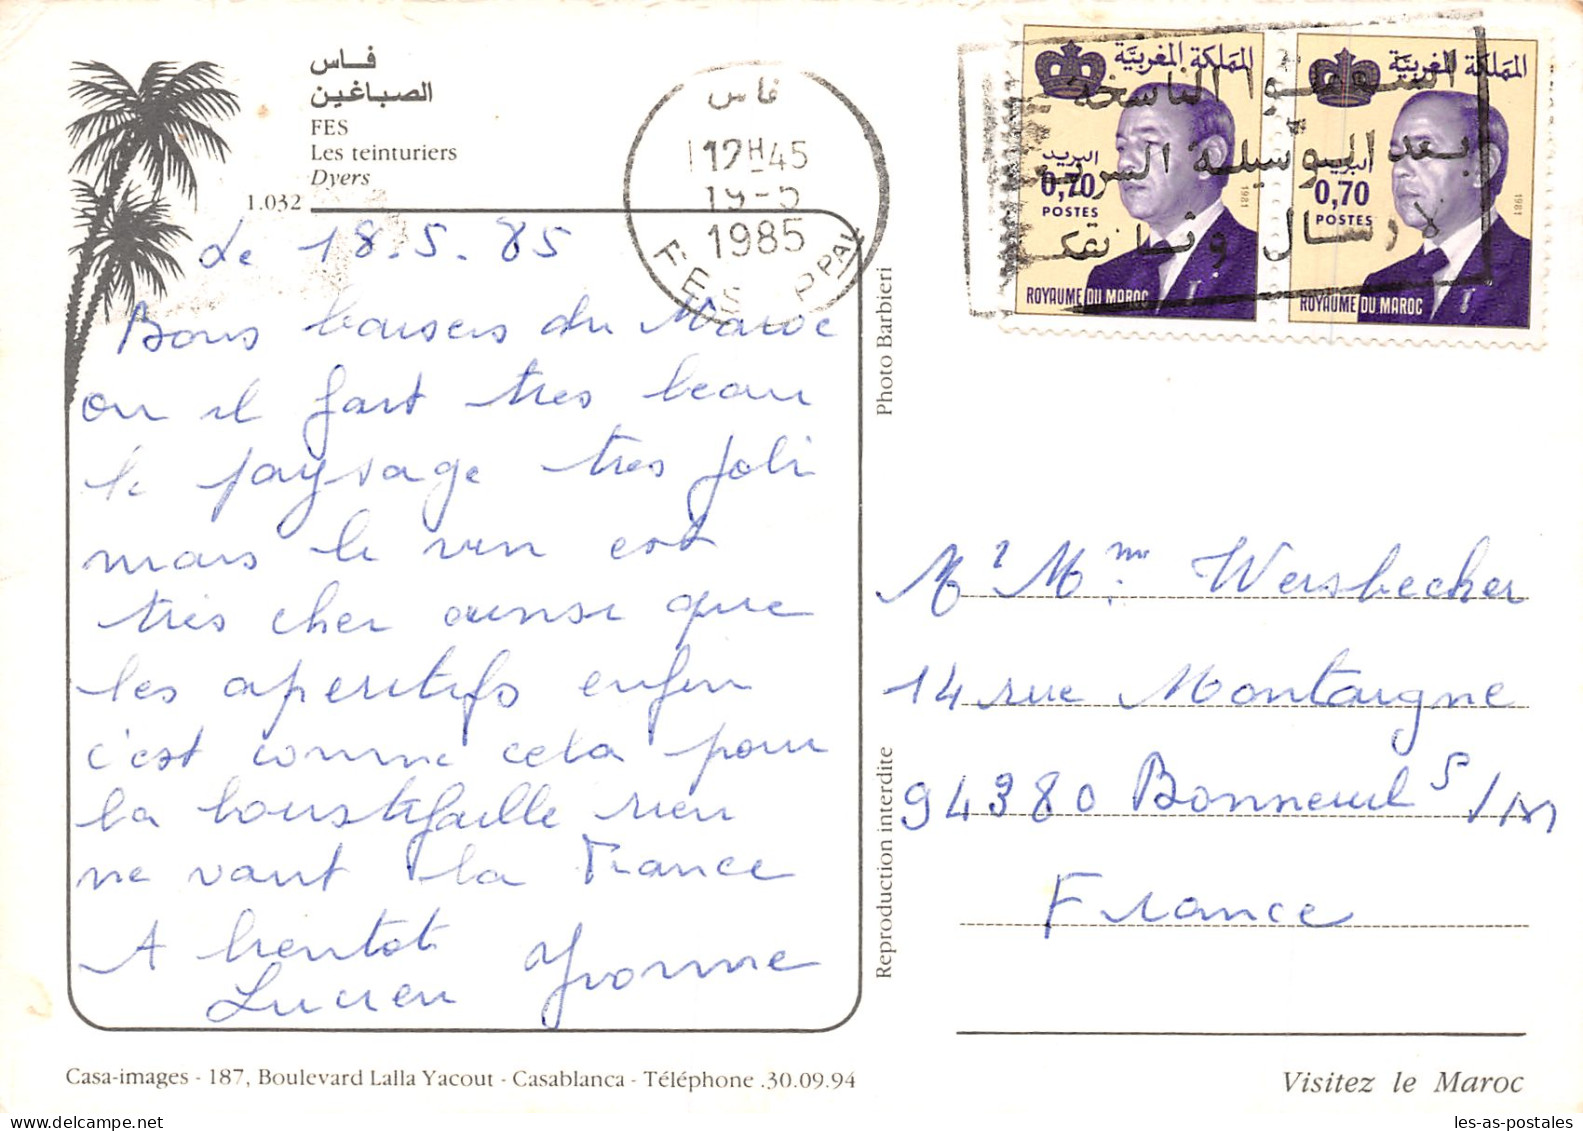 فاس
الصباغين
FES
Les teinturiers
Dyers
1.032
فاس
12H45
19-5
1985
FES PPAL
المملكة المغربية
البريد
0,70
POSTES
1981
ROYAUME DU MAROC
المملكة المغربية
البريد
0,70
POSTES
1981
ROYAUME DU MAROC
الناسخة
بعد الوسيلة
لارسال وثائقكم
Le 18.5.85
Bons baisers du Maroc
ou il fait tres beau
le paysage tres joli
mais le vin est
très cher ainsi que
les aperitifs enfin
c'est comme cela pour
la boustifaille rien
ne vaut la France
A bientot
Lucien Yvonne
Photo Barbieri
Reproduction interdite
Mr Mme Weisbecker
14 rue Montaigne
94380 Bonneuil S/M
France
Casa-images - 187, Boulevard Lalla Yacout - Casablanca - Téléphone .30.09.94
Visitez le Maroc
les-as-postales